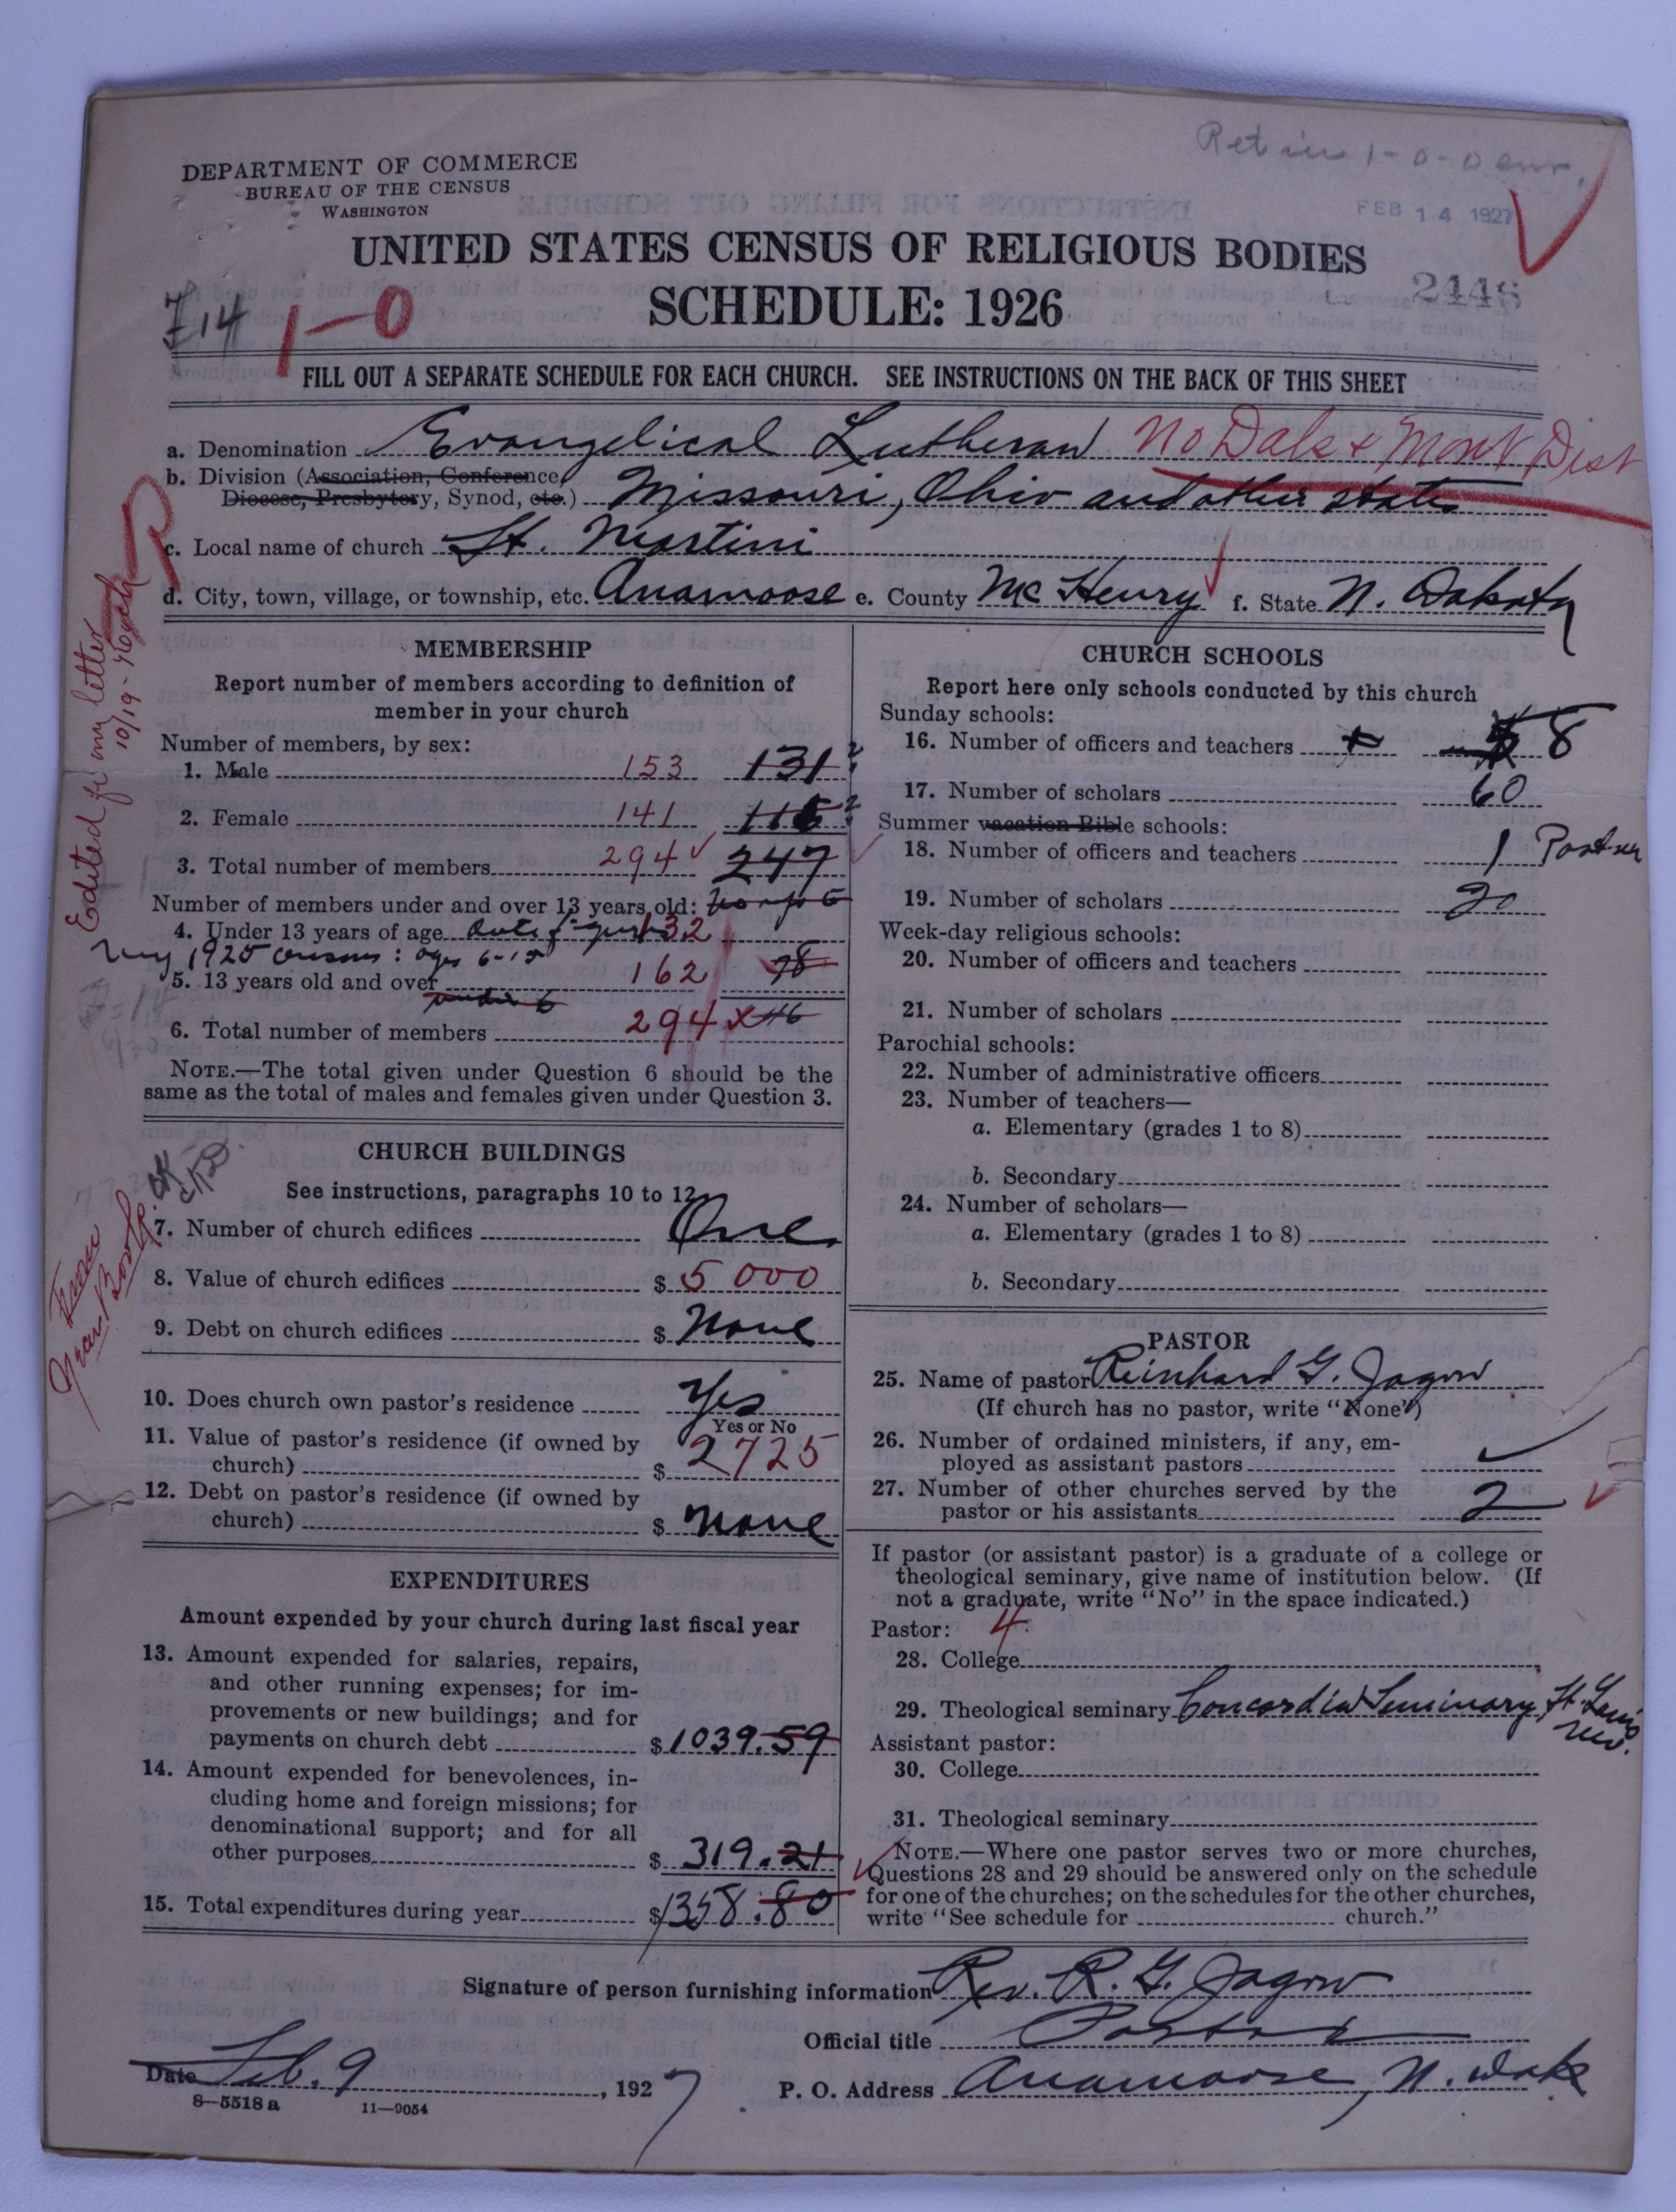 DEPARTMENT OF COMMERCE
BUREAU OF THE CENSUS
WASHINGTON
FEB 14 1927
UNITED STATES CENSUS OF RELIGIOUS BODIES
SCHEDULE: 1926
2448
1-0
FILL OUT A SEPARATE SCHEDULE FOR EACH CHURCH. SEE INSTRUCTIONS ON THE BACK OF THIS SHEET
a. Denomination Evangelical Lutheran No Dak & Mont Dist
b. Division (Association, Conference,
Diocese, Presbytery, Synod, etc.) Missouri, Ohio and other states
c. Local name of church St. Martini
d. City, town, village, or township, etc. Anamoose e. County McHenry f. State N. Dakota
Edited fr my letter
10/19
MEMBERSHIP
Report number of members according to definition of
member in your church
Number of members, by sex:
1. Male 153 131
2. Female 141 116
3. Total number of members 294 247
Number of members under and over 13 years old:
4. Under 13 years of age 132
my 1925 census: ages 6-15
5. 13 years old and over 162 78
under 6
6. Total number of members 294 x 46
NOTE.—The total given under Question 6 should be the
same as the total of males and females given under Question 3.
CHURCH BUILDINGS
See instructions, paragraphs 10 to 12
7. Number of church edifices One
8. Value of church edifices $ 5000
9. Debt on church edifices $ None
10. Does church own pastor's residence Yes
Yes or No
11. Value of pastor's residence (if owned by
church) $ 2725
12. Debt on pastor's residence (if owned by
church) $ None
From
EXPENDITURES
Amount expended by your church during last fiscal year
13. Amount expended for salaries, repairs,
and other running expenses; for im-
provements or new buildings; and for
payments on church debt $ 1039.59
14. Amount expended for benevolences, in-
cluding home and foreign missions; for
denominational support; and for all
other purposes $ 319.21
15. Total expenditures during year $ 1358.80
CHURCH SCHOOLS
Report here only schools conducted by this church
Sunday schools:
16. Number of officers and teachers 8
17. Number of scholars 60
Summer vacation Bible schools:
18. Number of officers and teachers 1 Pastor
19. Number of scholars 20
Week-day religious schools:
20. Number of officers and teachers
21. Number of scholars
Parochial schools:
22. Number of administrative officers
23. Number of teachers—
a. Elementary (grades 1 to 8)
b. Secondary
24. Number of scholars—
a. Elementary (grades 1 to 8)
b. Secondary
PASTOR
25. Name of pastor Reinhard G. Jagow
(If church has no pastor, write "None")
26. Number of ordained ministers, if any, em-
ployed as assistant pastors
27. Number of other churches served by the
pastor or his assistants 2
If pastor (or assistant pastor) is a graduate of a college or
theological seminary, give name of institution below. (If
not a graduate, write "No" in the space indicated.)
Pastor: 4
28. College
29. Theological seminary Concordia Seminary, St. Louis
Mo.
Assistant pastor:
30. College
31. Theological seminary
NOTE.—Where one pastor serves two or more churches,
Questions 28 and 29 should be answered only on the schedule
for one of the churches; on the schedules for the other churches,
write "See schedule for church."
Signature of person furnishing information Rev. R. G. Jagow
Official title Pastor
Date Feb. 9, 1927
P. O. Address Anamoose, N. Dak
8—5518 a 11—9054